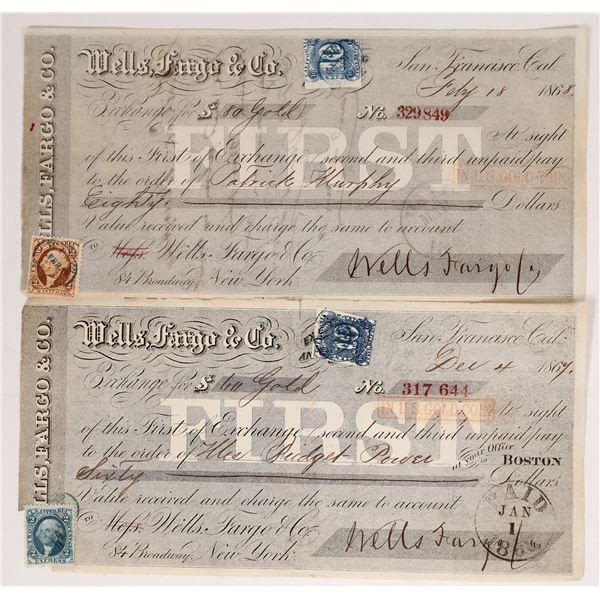 WELLS, FARGO & CO.
Wells, Fargo & Co.
San Francisco, Cal.
Feby 18 1868
Exchange for $ 80 Gold No. 329849
At sight
FIRST
of this First of Exchange (second and third unpaid) pay
IN U.S. GOLD COIN
to the order of Patrick Murphy
Eighty Dollars
Value received and charge the same to account
TO Messs. Wells, Fargo & Co.
84 Broadway, New York.
Wells Fargo Co
ELLS, FARGO & CO.
Wells, Fargo & Co.
San Francisco, Cal.
Dec 4 1867.
Exchange for $ 60 Gold No. 317644
IN U.S. GOLD COIN
At sight
FIRST
of this First of Exchange (second and third unpaid) pay
to the order of Mrs Bridget Power at your Office in BOSTON
Sixty Dollars
Value received and charge the same to account
TO Messs. Wells, Fargo & Co.
84 Broadway, New York.
Wells Fargo
PAID
JAN
1
186
2 2
EXPRESS